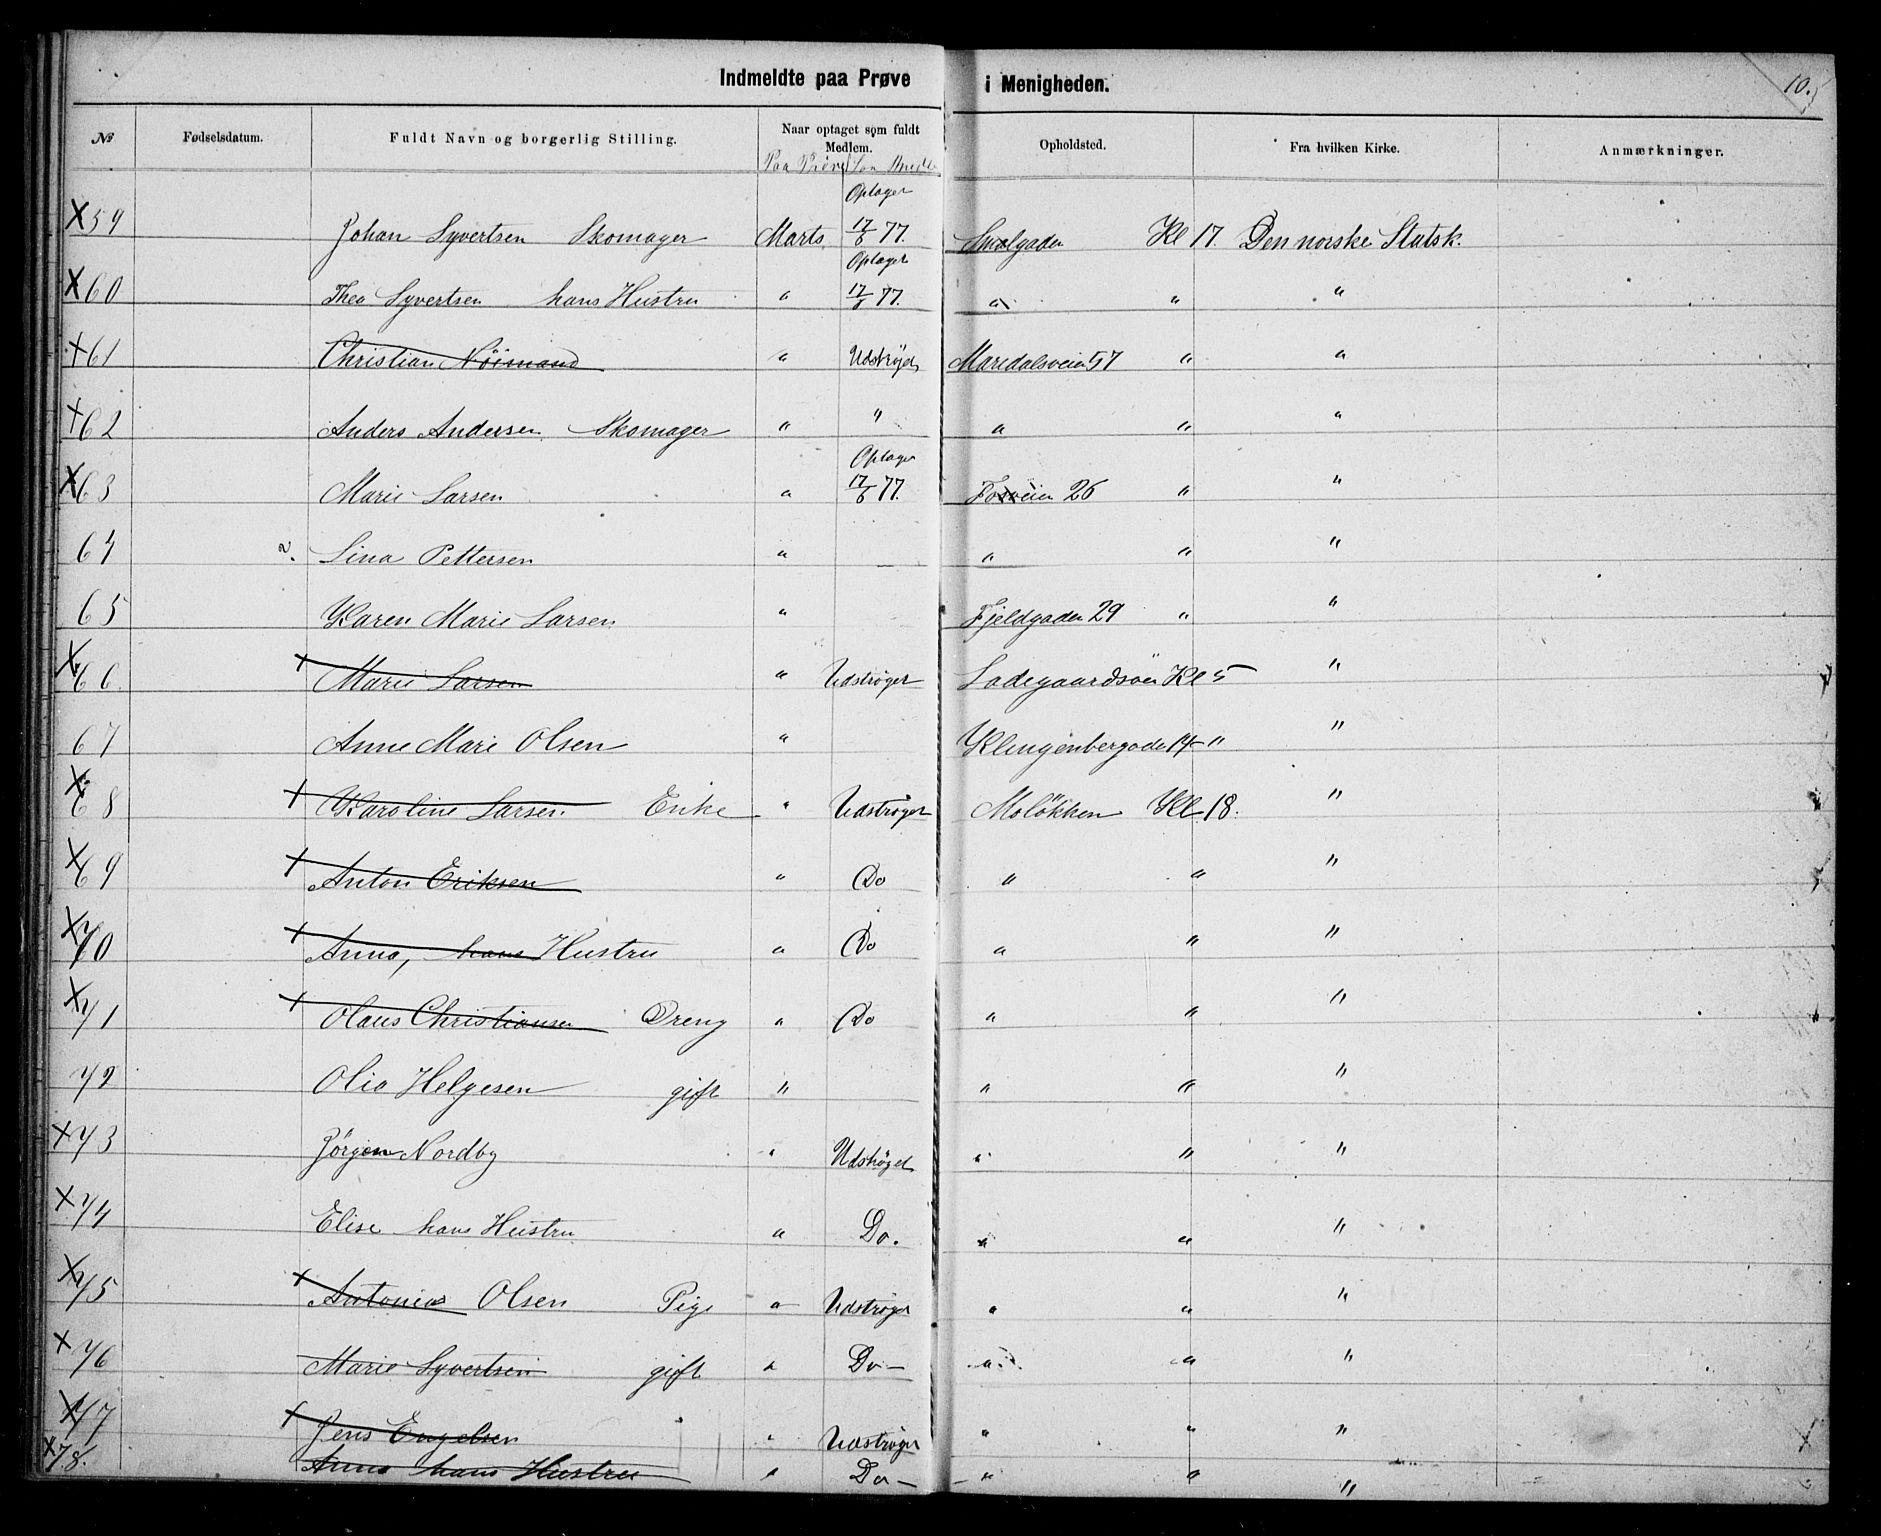 Indmeldte paa Prøve i Menigheden. 10.
№ Fødselsdatum. Fuldt Navn og borgerlig Stilling. Naar optaget som fuldt Medlem. Opholdsted. Fra hvilken Kirke. Anmærkninger.
Paa Prøve
Optaget
X 59 Johan Syvertsen Skomager Marts 17/6 77. Smalgaden Kl 17. Den norske Statsk.
Optaget
X 60 Thea Syvertsen hans Hustru " 17/6 77. " " "
+ 61 Christian Nöimand " Udströget Maridalsveien 57 " "
+ 62 Anders Andersen Skomager " " " " "
Optaget
X 63 Marie Larsen " 17/6 77. Fossveien 26 " "
64 2. Lina Pettersen " " " "
65 Karen Marie Larsen " Fjeldgaden 29 " "
X 66. + Marie Larsen " Udströget Ladegaardsöen Kl 5 "
67 Anne Marie Olsen " Klingenberggade 14 " "
X 68 + Karoline Larsen Enke " Udströget Molökken Kl 18. "
X 69 + Anton Eriksen " Do " " "
X 70 + Anna, hans Hustru " Do " " "
X 71 + Olaus Christiansen Dreng " Do " " "
72 Olia Helgesen gift " " " "
X 73 Jörgen Nordby " Udströget " " "
X 74 Elise hans Hustru " Do. " " "
X 75 + Antonie Olsen Pige " Udströget " " "
X 76 Marie Syvertsen gift " Do — " " "
X 77 + Jens Engelsen " Udströget " " "
X 78. Anna hans Hustru " Do — " " "